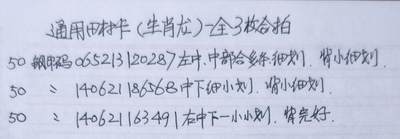 通用田村卡（生肖龙）一全3枚合拍
50 钢甲码065213120287左中.中部含多条细划.背小细划.
50 〃 14062186568中下细小划.背小细划.
50 〃 14062116349右中下一小小划.背完好.